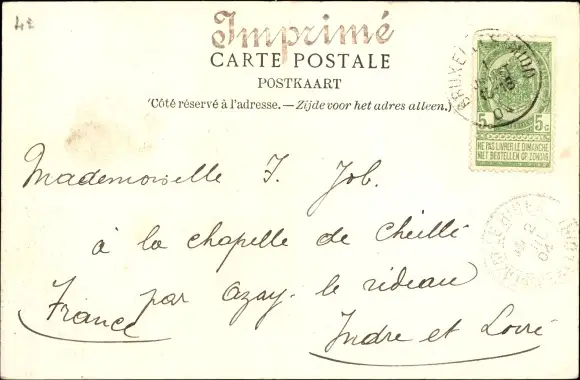 4e
Imprimé
CARTE POSTALE
POSTKAART
(Côté réservé à l'adresse. — Zijde voor het adres alleen.)
5c 5c
NE PAS LIVRER LE DIMANCHE
NIET BESTELLEN OP ZONDAG
Mademoiselle J. Job.
à la chapelle de Cheillé
par Azay-le rideau
France
Indre et Loire